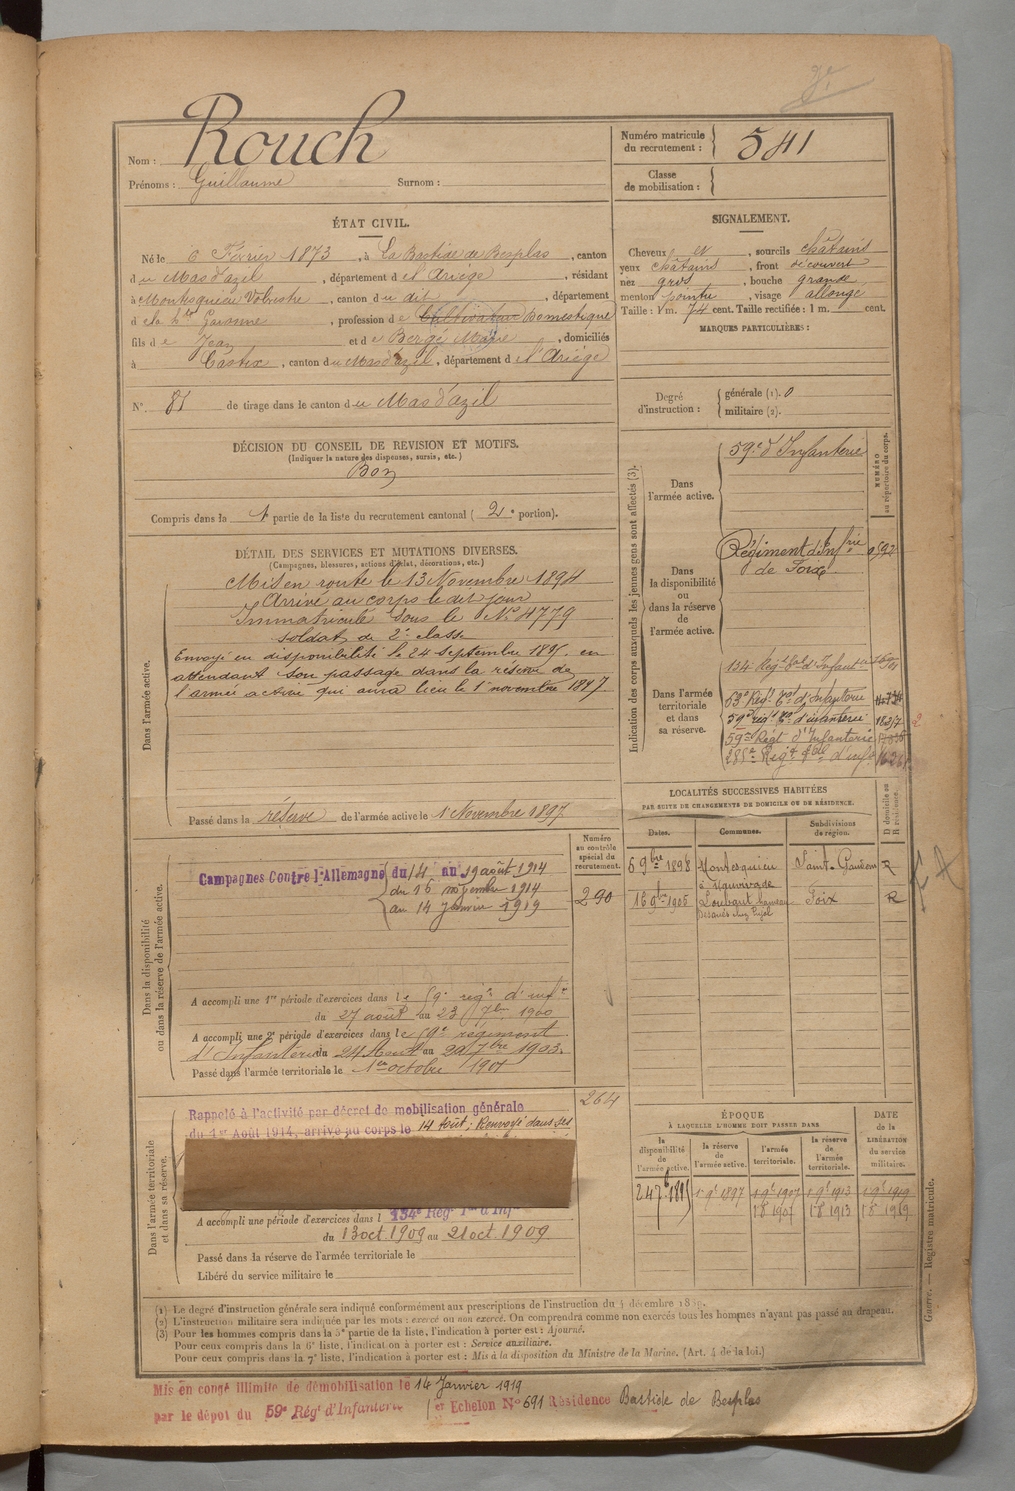 Rouch
Nom :
Prénoms : Guillaume Surnom :
Numéro matricule
du recrutement : 541
Classe
de mobilisation :
ÉTAT CIVIL.
Né le 6 Février 1873, à La Bastide de Besplas, canton
du Mas d'azil, département de l'Ariège, résidant
à Montesquieu Volvestre, canton du dit, département
de la Hte Garonne, profession de Cultivateur Domestique
fils de Jean et de Bergé Marie, domiciliés
à Castex, canton du Mas d'azil, département de l'Ariège
N°. 81 de tirage dans le canton du Mas d'azil
DÉCISION DU CONSEIL DE REVISION ET MOTIFS.
(Indiquer la nature des dispenses, sursis, etc.)
Bon
Compris dans la 1 partie de la liste du recrutement cantonal ( 2e portion).
SIGNALEMENT.
Cheveux et, sourcils châtains
yeux châtains, front découvert
nez gros, bouche grande
menton pointu, visage allongé
Taille : 1 m. 74 cent. Taille rectifiée : 1 m. cent.
MARQUES PARTICULIÈRES :
Degré
d'instruction :
générale (1). 0
militaire (2).
DÉTAIL DES SERVICES ET MUTATIONS DIVERSES.
(Campagnes, blessures, actions d'éclat, décorations, etc.)
Dans l'armée active.
Mis en route le 13 Novembre 1894
Arrivé au corps le dit jour
Immatriculé sous le N° 4779
soldat de 2e classe
Envoyé en disponibilité le 24 septembre 1895 en
attendant son passage dans la réserve de
l'armée active qui aura lieu le 1er novembre 1897.
Passé dans la réserve de l'armée active le 1er Novembre 1897
Indication des corps auxquels les jeunes gens sont affectés (3).
NUMÉRO
au répertoire du corps.
Dans
l'armée active.
59e d'Infanterie
Dans
la disponibilité
ou
dans la réserve
de
l'armée active.
Régiment d'Infrie
de Foix
Dans l'armée
territoriale
et dans
sa réserve.
134e Régt tal d'Infanterie
59e Régt d'Infanterie
LOCALITÉS SUCCESSIVES HABITÉES
PAR SUITE DE CHANGEMENTS DE DOMICILE OU DE RÉSIDENCE.
Dates. Communes. Subdivisions
de région. D domicile ou
R résidence.
6 9bre 1898 Montesquieu Saint-Gaudens R
16 9bre 1905 Loubaut hameau Foix R
Dans la disponibilité
ou dans la réserve de l'armée active.
Numéro
au contrôle
spécial du
recrutement.
Campagnes Contre l'Allemagne du 14 au 19 août 1914
du 16 novembre 1914
au 14 Janvier 1919
290
A accompli une 1re période d'exercices dans le 59e régt d'infie
du 27 août au 23 7bre 1900
A accompli une 2e période d'exercices dans le 59e régiment
d'Infanterie du 24 Août au 20 7bre 1903.
Passé dans l'armée territoriale le 1er octobre 1907
Dans l'armée territoriale
et dans sa réserve.
264
Rappelé à l'activité par décret de mobilisation générale
du 1er Août 1914, arrivé au corps le 14 Août; Renvoyé dans ses
A accompli une période d'exercices dans l 134e Rég. Ter d'Inf
du 13 oct. 1909 au 21 oct. 1909
Passé dans la réserve de l'armée territoriale le
Libéré du service militaire le
ÉPOQUE
À LAQUELLE L'HOMME DOIT PASSER DANS
la
disponibilité
de
l'armée active.
la réserve
de
l'armée active.
l'armée
territoriale.
la réserve
de
l'armée
territoriale.
DATE
de la
LIBÉRATION
du service
militaire.
24 7b 1895 1 9b 1897 1 9b 1907 1 9b 1913 1 9b 1919
1 8 1907 1 8 1913 1 8 1919
(1) Le degré d'instruction générale sera indiqué conformément aux prescriptions de l'instruction du 4 décembre 1889.
(2) L'instruction militaire sera indiquée par les mots : exercé ou non exercé. On comprendra comme non exercés tous les hommes n'ayant pas passé au drapeau.
(3) Pour les hommes compris dans la 5e partie de la liste, l'indication à porter est : Ajourné.
Pour ceux compris dans la 6e liste, l'indication à porter est : Service auxiliaire.
Pour ceux compris dans la 7e liste, l'indication à porter est : Mis à la disposition du Ministre de la Marine. (Art. 4 de la loi.)
Guerre. — Registre matricule.
Mis en congé illimité de démobilisation le 14 Janvier 1919
par le dépôt du 59e Régt d'Infanterie et Echelon N° 691 Résidence Bastide de Besplas